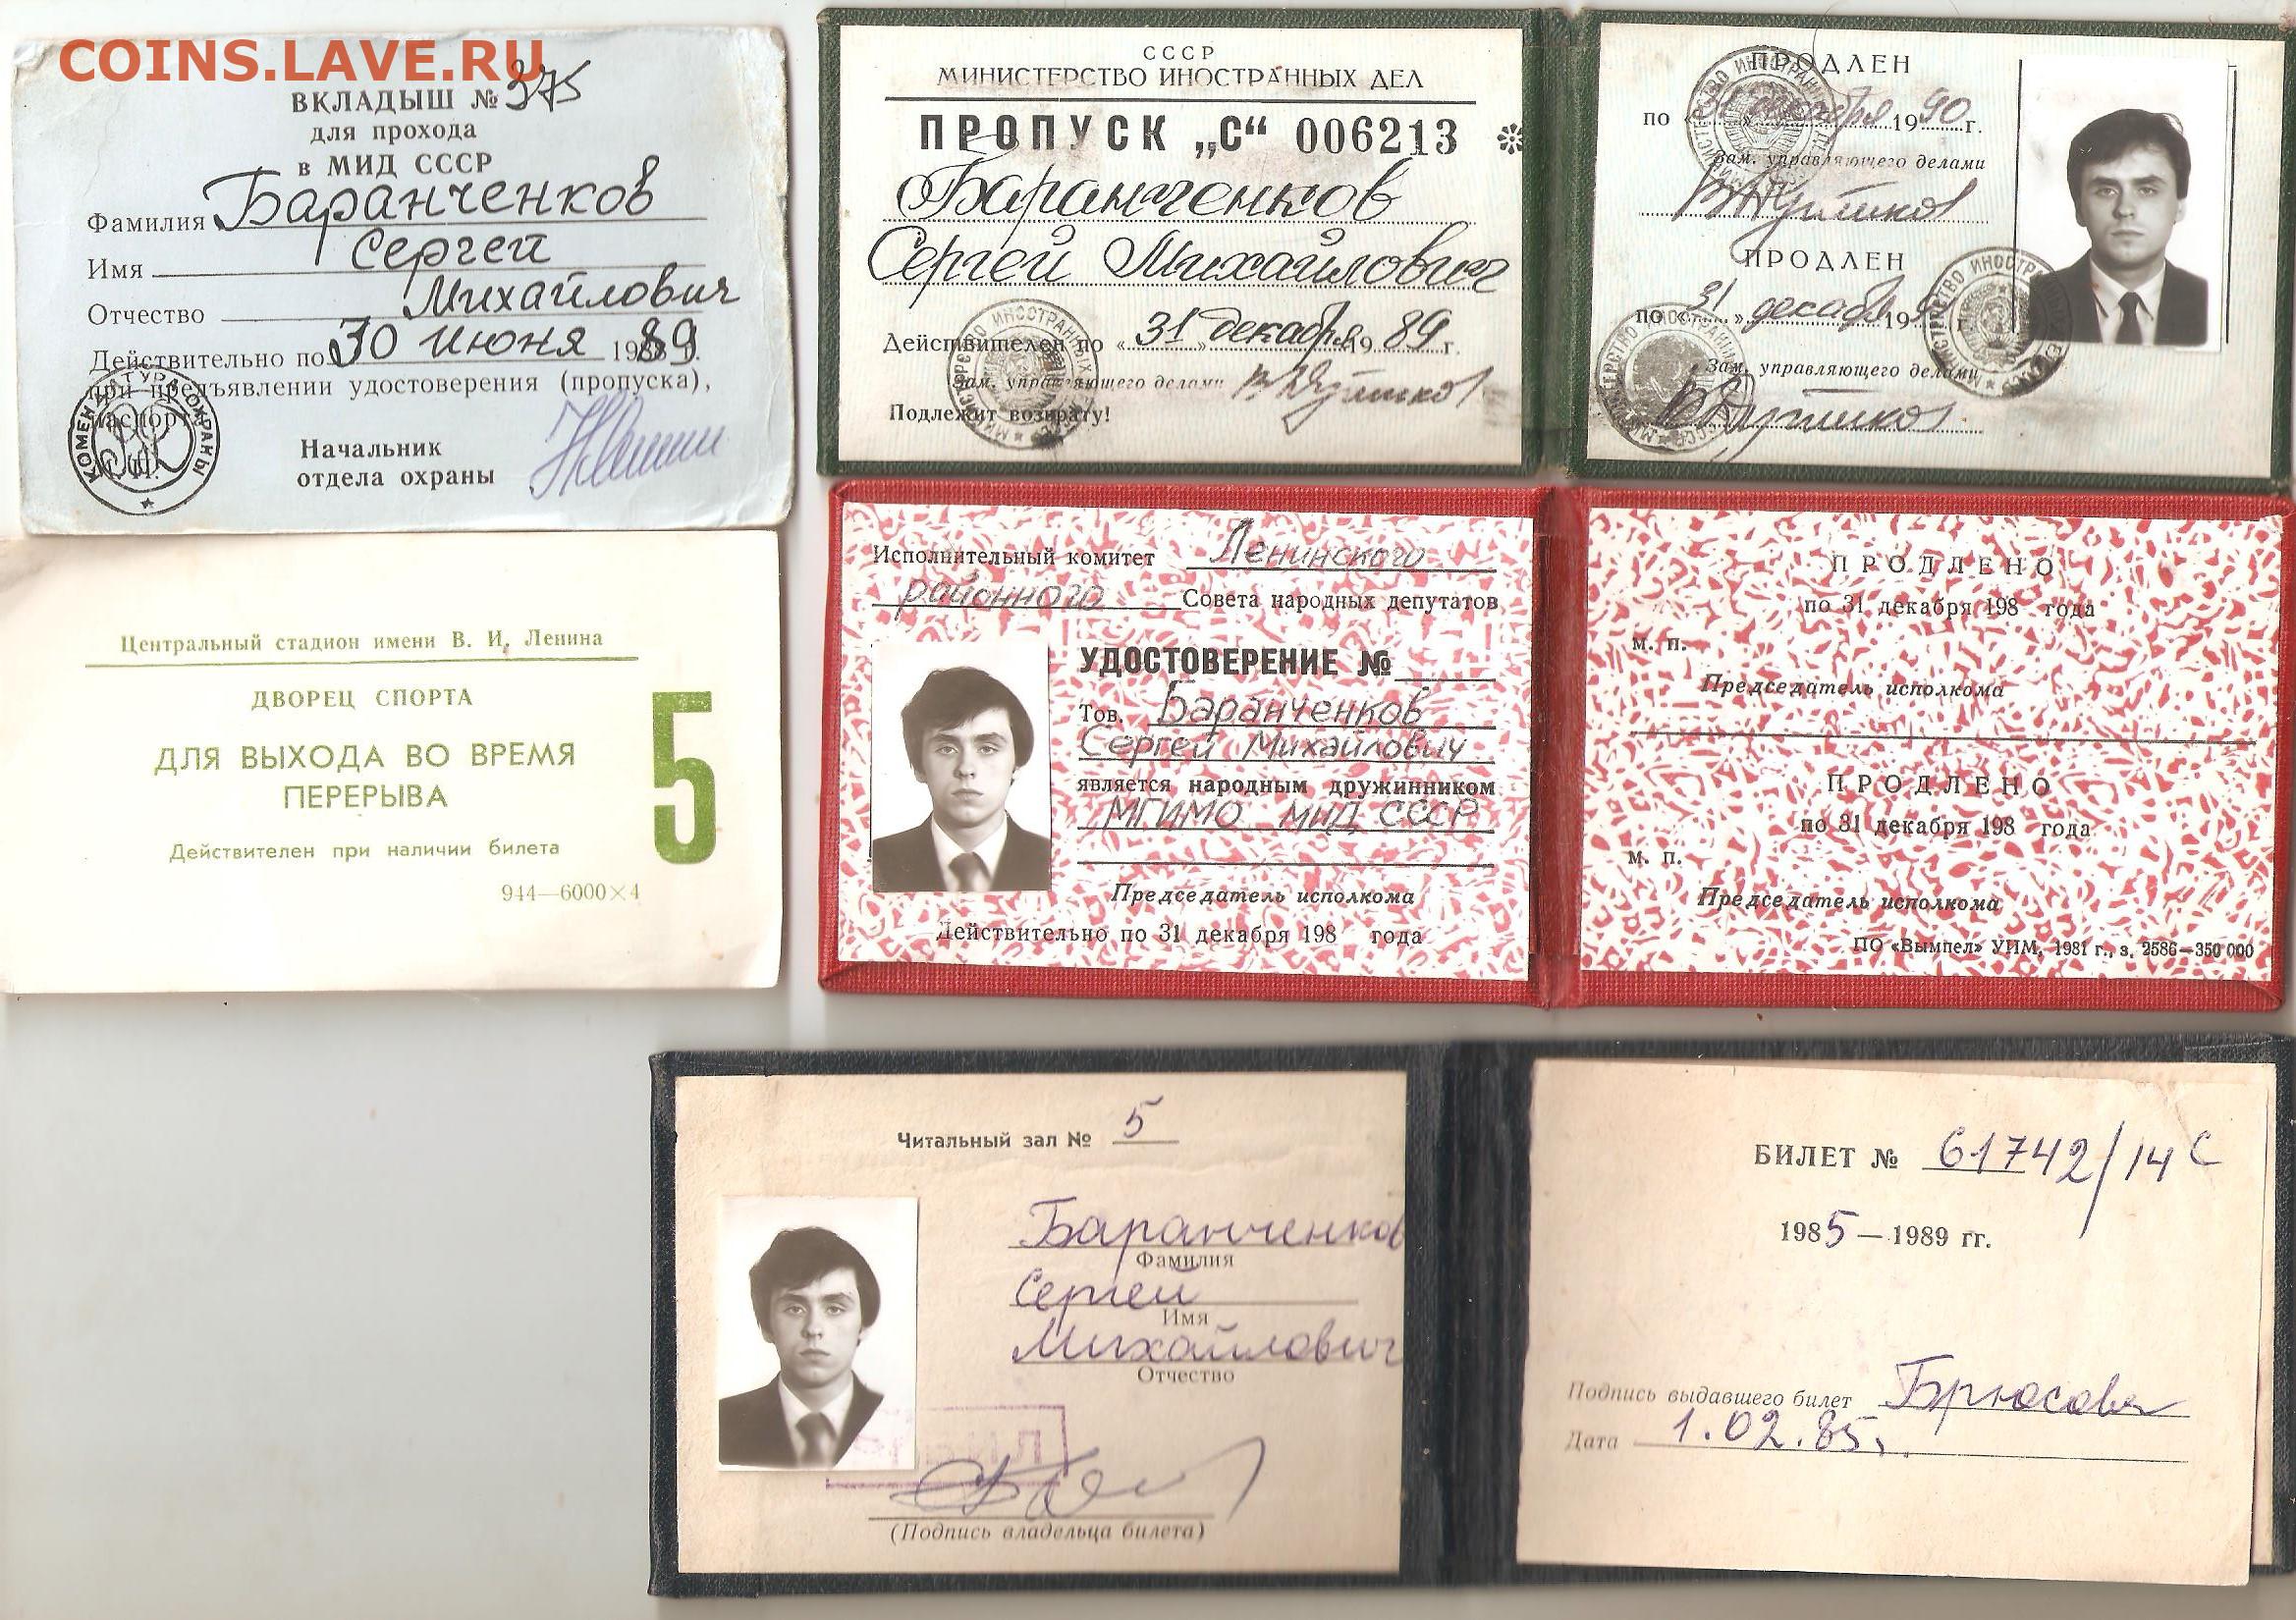 COINS.LAVE.RU
ВКЛАДЫШ № 375
для прохода
в МИД СССР
Фамилия Баранченков
Имя Сергей
Отчество Михайлович
Действительно по 30 июня 1989 г.
при предъявлении удостоверения (пропуска),
паспорта
КОМЕНДАТУРА ОХРАНЫ
Начальник
отдела охраны
Центральный стадион имени В. И. Ленина
ДВОРЕЦ СПОРТА
ДЛЯ ВЫХОДА ВО ВРЕМЯ
ПЕРЕРЫВА
5
Действителен при наличии билета
944—6000×4
СССР
МИНИСТЕРСТВО ИНОСТРАННЫХ ДЕЛ
ПРОПУСК „С“ 006213 *
Баранченков
Сергей Михайлович
Действителен по «31» декабря 1989 г.
Зам. управляющего делами
Подлежит возврату!
ПРОДЛЕН
по «31» декабря 1990 г.
Зам. управляющего делами
ПРОДЛЕН
по «31» декабря 19 г.
Зам. управляющего делами
Исполнительный комитет Ленинского
районного Совета народных депутатов
УДОСТОВЕРЕНИЕ №
Тов. Баранченков
Сергей Михайлович
является народным дружинником
МГИМО МИД СССР
Председатель исполкома
Действительно по 31 декабря 198 года
ПРОДЛЕНО
по 31 декабря 198 года
м. п.
Председатель исполкома
ПРОДЛЕНО
по 31 декабря 198 года
м. п.
Председатель исполкома
ПО «Вымпел» УИМ, 1981 г., з. 2586—350 000
Читальный зал № 5
Баранченков
Фамилия
Сергей
Имя
Михайлович
Отчество
(Подпись владельца билета)
БИЛЕТ № 61742/14 С
1985 — 1989 гг.
Подпись выдавшего билет Брюсова
Дата 1.02.85.